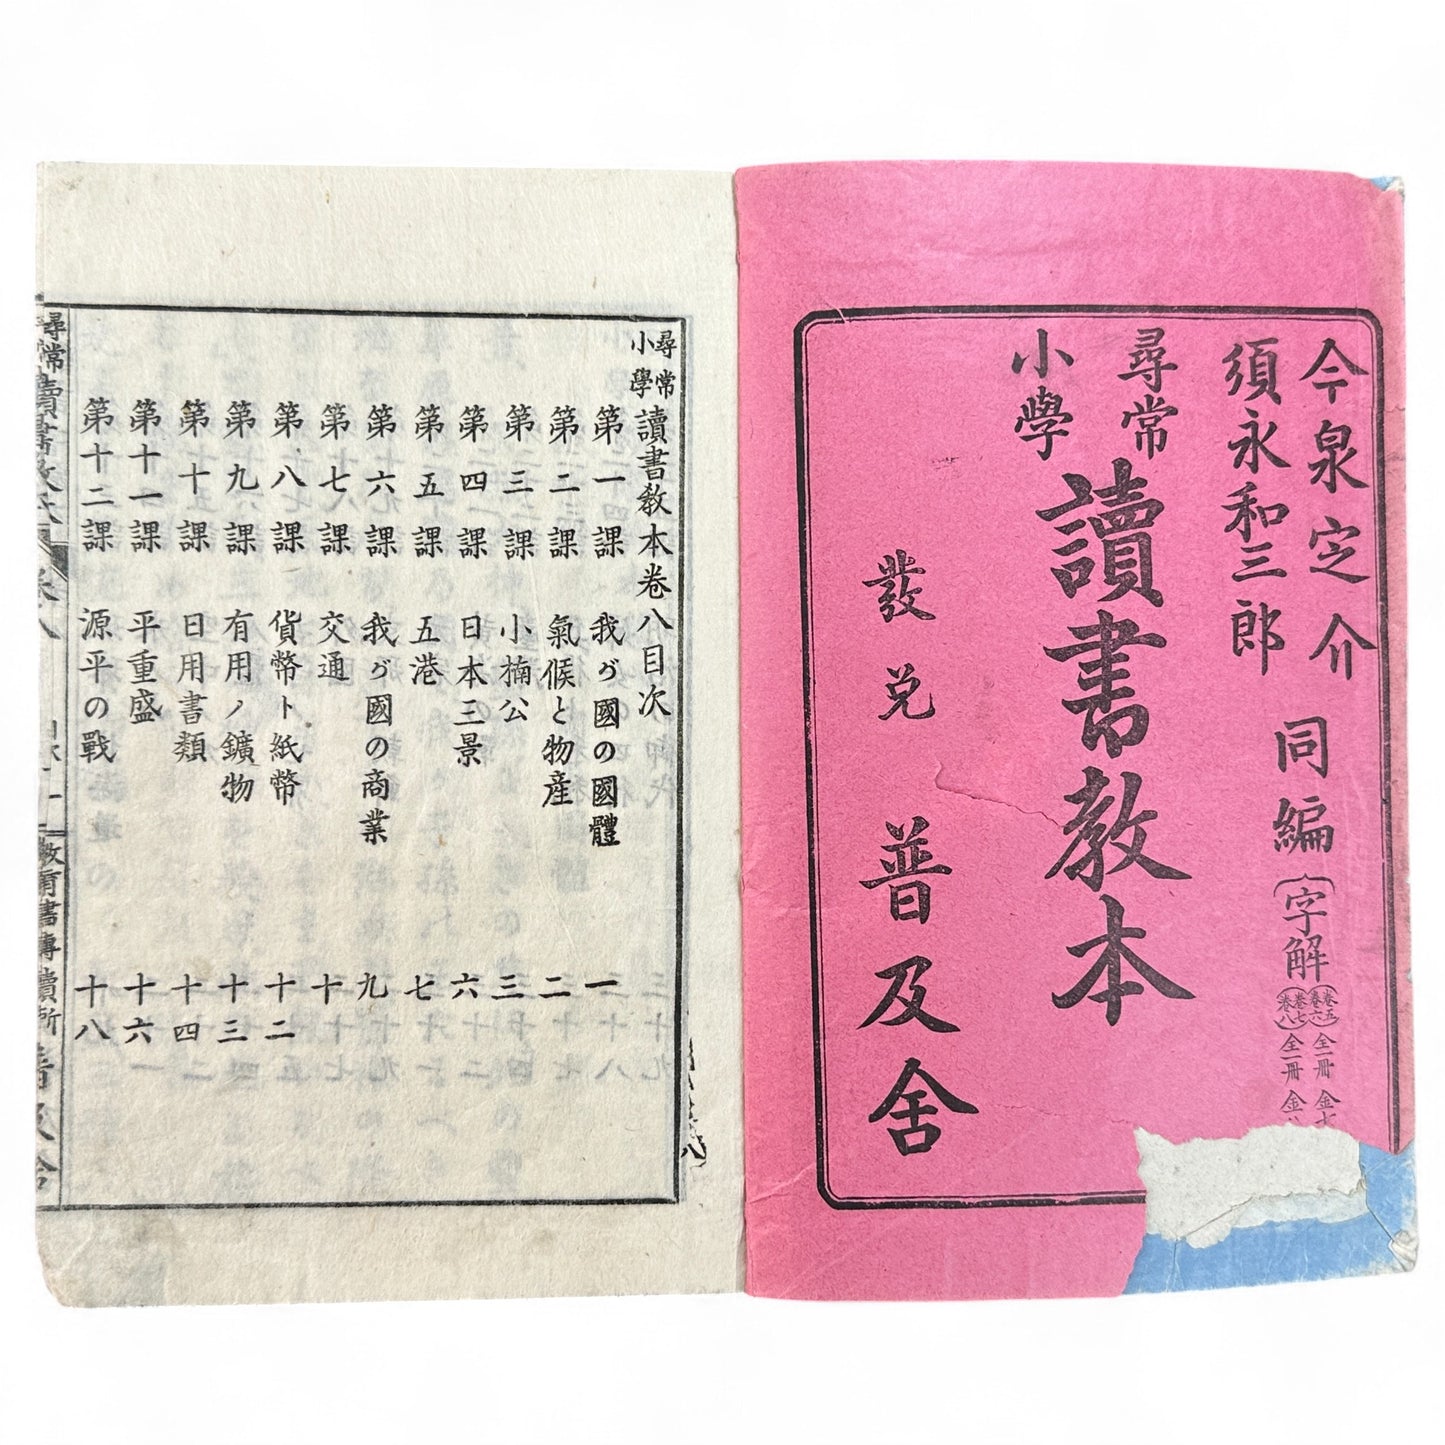 今泉定介
須永和三郎
同編
字解
卷五
卷六
全一冊
金七
卷七
卷八
全一冊
金八
尋常
小學
讀書教本
發兌
普及舍
尋常
小學
讀書教本卷八目次
第一課 我ガ國の國體 一
第二課 氣候と物産 二
第三課 小楠公 三
第四課 日本三景 六
第五課 五港 七
第六課 我ガ國の商業 九
第七課 交通 十
第八課 貨幣ト紙幣 十二
第九課 有用ノ鑛物 十三
第十課 日用書類 十四
第十一課 平重盛 十六
第十二課 源平の戰 十八
尋常讀書教本
卷八
教育書專賣所
普及舍